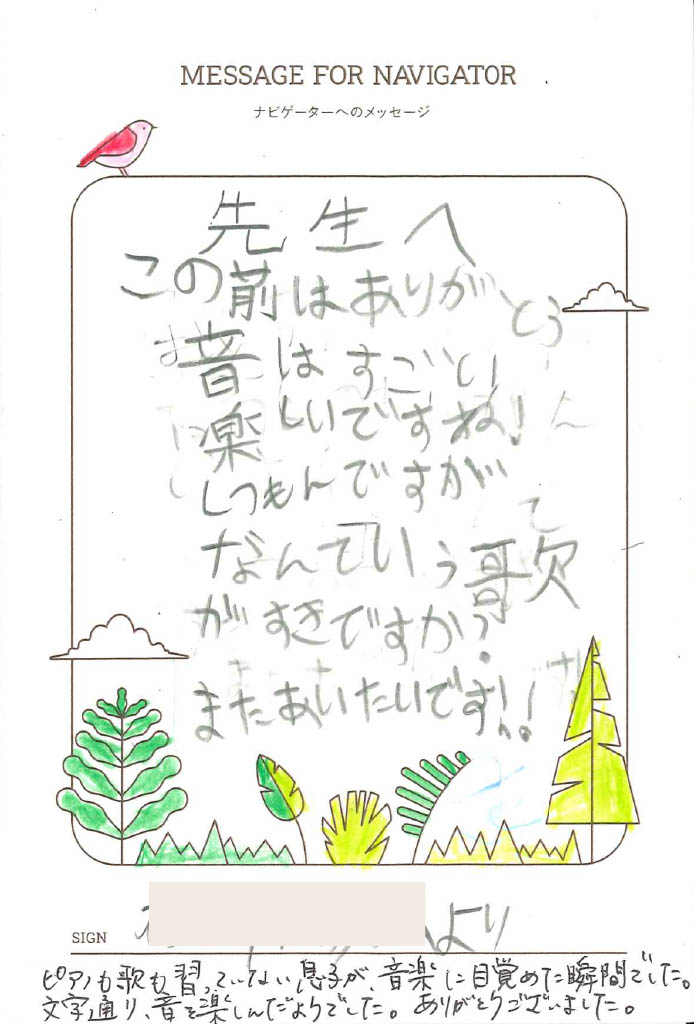 MESSAGE FOR NAVIGATOR
ナビゲーターへのメッセージ
先生へ
この前はありがとう
音はすごい
楽しいですね!
しつもんですが
なんていう歌
がすきですか?
またあいたいです!!
SIGN
より
ピアノも歌も習っていない息子が、音楽に目覚めた瞬間でした。
文字通り、音を楽しんだようでした。ありがとうございました。